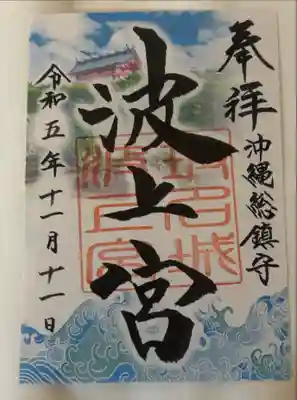 奉拝
沖縄総鎮守
波上宮
令和五年十一月十一日